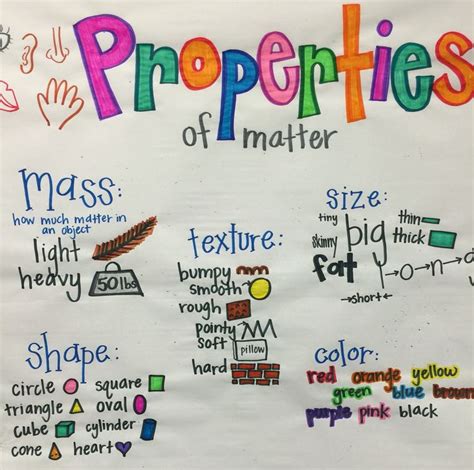 Properties
of matter
mass:
how much matter in
an object
light
heavy 50 lbs
texture:
bumpy
smooth
rough
pointy
soft pillow
hard
size:
tiny
skinny
big
fat
thin
thick
y→o→n→d
→short←
shape:
circle square
triangle oval
cube cylinder
cone heart
color:
red orange yellow
green blue brown
purple pink black